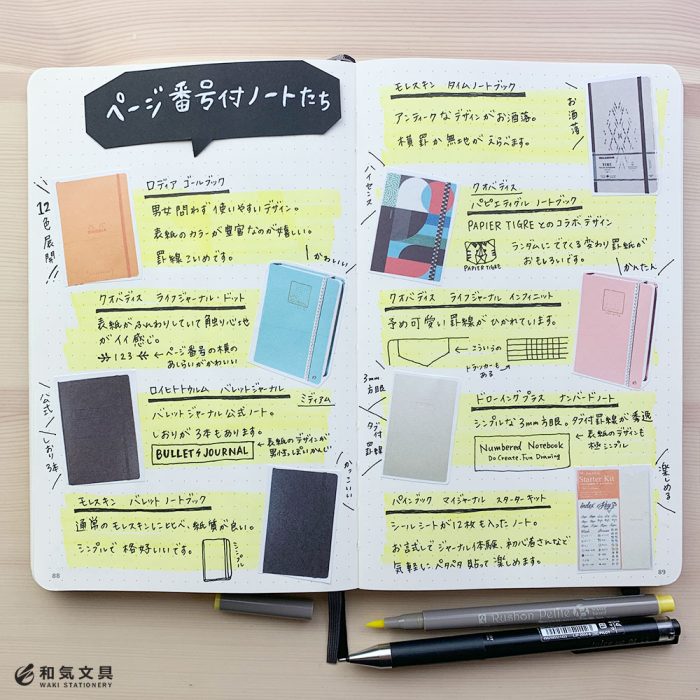 ページ番号付ノートたち
ロディア ゴールブック
12色展開!!
男女問わず使いやすいデザイン。
表紙のカラーが豊富なのが嬉しい。
罫線こいめです。
かわいい
クオバディス ライフジャーナル・ドット
表紙がふんわりしていて触り心地
がイイ感じ。
123 ← ページ番号の横の
あしらいがかわいい
ロイヒトトゥルム バレットジャーナル
ミディアム
公式
しおり3本
バレットジャーナル公式ノート。
しおりが3本もあります。
BULLET JOURNAL
← 表紙のデザインが
男性っぽいかんじ
かっこいい
モレスキン バレットノートブック
通常のモレスキンに比べ、紙質が良い。
シンプルで格好いいです。
シンプル
88
モレスキン タイムノートブック
お洒落
アンティークなデザインがお洒落。
横罫か無地がえらべます。
ハイセンス
クオバディス
パピエティグル ノートブック
PAPIER TIGREとのコラボデザイン
PAPIER TIGRE
ランダムにでてくる変わり罫紙が
おもしろいです。
かんたん
クオバディス ライフジャーナル インフィニット
予め可愛い罫線がひかれています。
← こういうの
トラッカーも
ある
3mm
方眼
タブ付
罫線
ドローイングプラス ナンバードノート
シンプルな3mm方眼。タブ付罫線が秀逸
Numbered Notebook
Do Create. Fun Drawing
← 表紙のデザインも
極シンプル
楽しめる
パインブック マイジャーナル スターターキット
シールシートが12枚も入ったノート。
お試しでジャーナル体験、初心者さんなど
気軽にペタペタ貼って楽しめます。
Starter Kit
index
Key
89
Rushon Petite
和気文具
WAKI STATIONERY